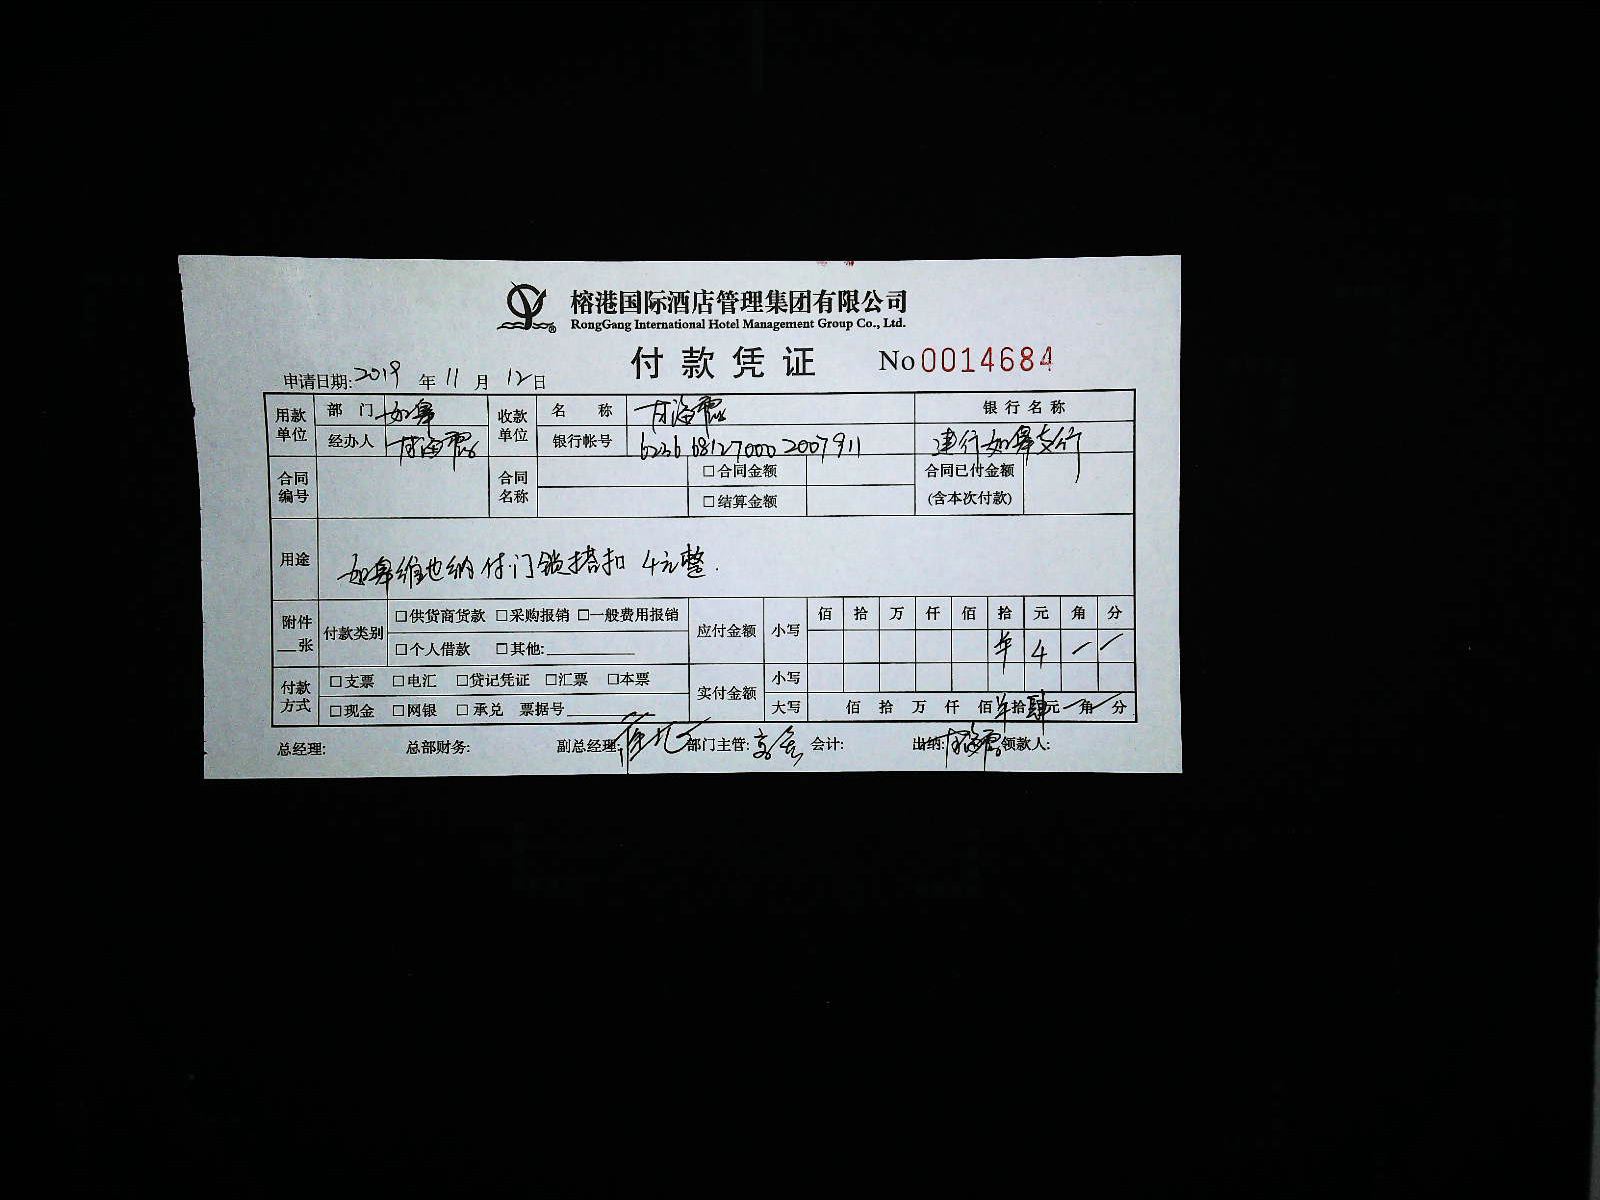 榕港国际酒店管理集团有限公司
RongGang International Hotel Management Group Co., Ltd.
付款凭证 No 0014684
申请日期: 2019 年 11 月 12 日
用款单位 部门 如皋 收款单位 名称 银行名称
经办人 银行帐号 6236 681270002007911 建行如皋支行
合同编号 合同名称 □合同金额 合同已付金额
□结算金额 (含本次付款)
用途 如皋维也纳付门锁搭扣 4元整.
附件 __张 付款类别 □供货商货款 □采购报销 □一般费用报销 应付金额 小写 佰 拾 万 仟 佰 拾 元 角 分
□个人借款 □其他:________ ¥ 4 — —
付款方式 □支票 □电汇 □贷记凭证 □汇票 □本票 实付金额 小写
□现金 □网银 □承兑 票据号________ 大写 佰 拾 万 仟 佰 ¥ 拾 肆 元 — 角 — 分
总经理: 总部财务: 副总经理: 部门主管: 会计: 出纳: 领款人: